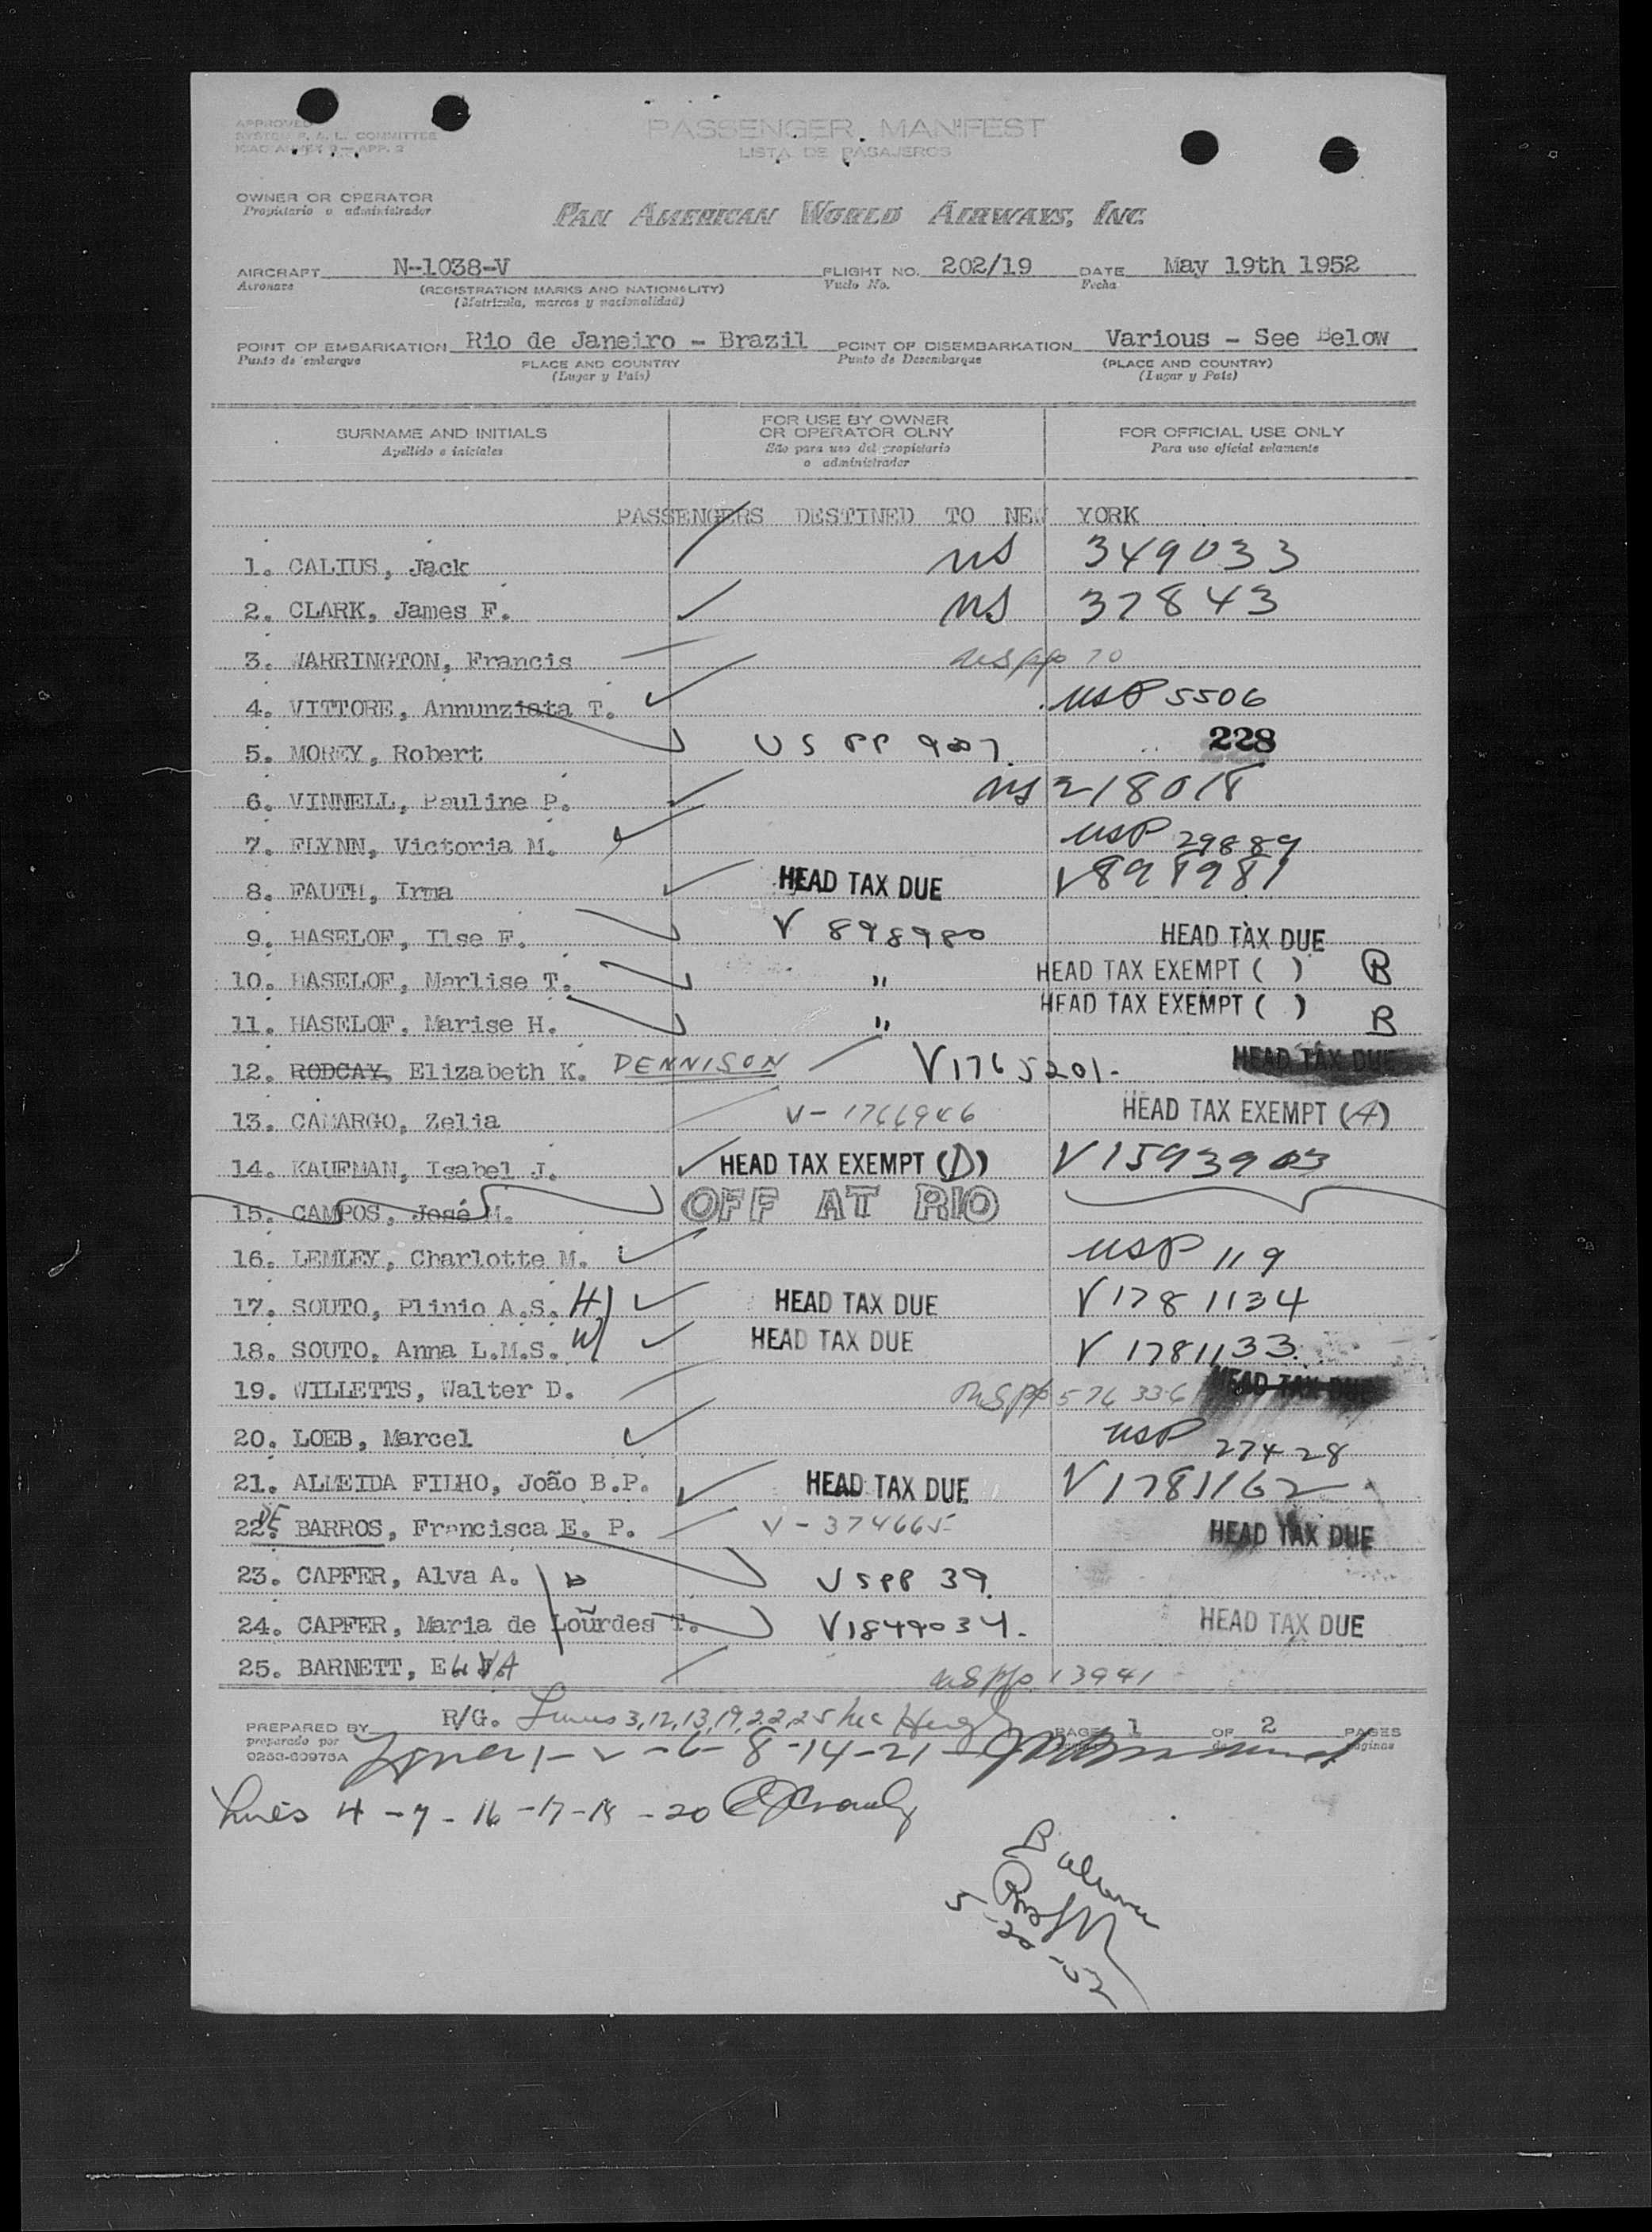 APPROVED
SYSTEM F. A. L. COMMITTEE
ICAO ANNEX 9 — APP. 2
PASSENGER MANIFEST
LISTA DE PASAJEROS
OWNER OR OPERATOR
Propietario o administrador
PAN AMERICAN WORLD AIRWAYS, INC.
AIRCRAFT N-1038-V FLIGHT NO. 202/19 DATE May 19th 1952
Aeronave (REGISTRATION MARKS AND NATIONALITY) Vuelo No. Fecha
(Matricula, marcas y nacionalidad)
POINT OF EMBARKATION Rio de Janeiro - Brazil POINT OF DISEMBARKATION Various - See Below
Punto de embarque PLACE AND COUNTRY Punto de Desembarque (PLACE AND COUNTRY)
(Lugar y Pais) (Lugar y Pais)
SURNAME AND INITIALS FOR USE BY OWNER OR OPERATOR OLNY FOR OFFICIAL USE ONLY
Apellido e iniciales São para uso del propietario o administrador Para uso oficial solamente
PASSENGERS DESTINED TO NEW YORK
1. CALIUS, Jack US 349033
2. CLARK, James F. US 37843
3. WARRINGTON, Francis US pp 70
4. VITTORE, Annunziata T. USP 5506
5. MOREY, Robert US PP 907 228
6. VINNELL, Pauline P. US 218018
7. FLYNN, Victoria M. USP 29889
8. FAUTH, Irma HEAD TAX DUE V898981
9. HASELOF, Ilse F. V 898980 HEAD TAX DUE
10. HASELOF, Marlise T. " HEAD TAX EXEMPT ( ) B
11. HASELOF, Marise H. " HEAD TAX EXEMPT ( ) B
12. RODCAY, Elizabeth K. DENNISON V1765201- HEAD TAX DUE
13. CAMARGO, Zelia V-1766946 HEAD TAX EXEMPT (A)
14. KAUFMAN, Isabel J. HEAD TAX EXEMPT (D) V1593903
15. CAMPOS, José M. OFF AT RIO
16. LEMLEY, Charlotte M. USP 119
17. SOUTO, Plinio A.S. H HEAD TAX DUE V1781134
18. SOUTO, Anna L.M.S. W HEAD TAX DUE V 1781133
19. WILLETTS, Walter D. US pp 576336 HEAD TAX DUE
20. LOEB, Marcel USP 27428
21. ALMEIDA FILHO, João B.P. HEAD TAX DUE V1781162
22. DE BARROS, Francisca E. P. V-374665 HEAD TAX DUE
23. CAPFER, Alva A. USPP 39
24. CAPFER, Maria de Lourdes T. V1849034- HEAD TAX DUE
25. BARNETT, ELVA US pp 13941
PREPARED BY R/G. Lines 3,12,13,19,22,25 PAGE 1 OF 2 PAGES
preparado por
0253-60975A Lines 1-2-6-8-14-21-
Lines 4-7-16-17-18-20
5-20-52